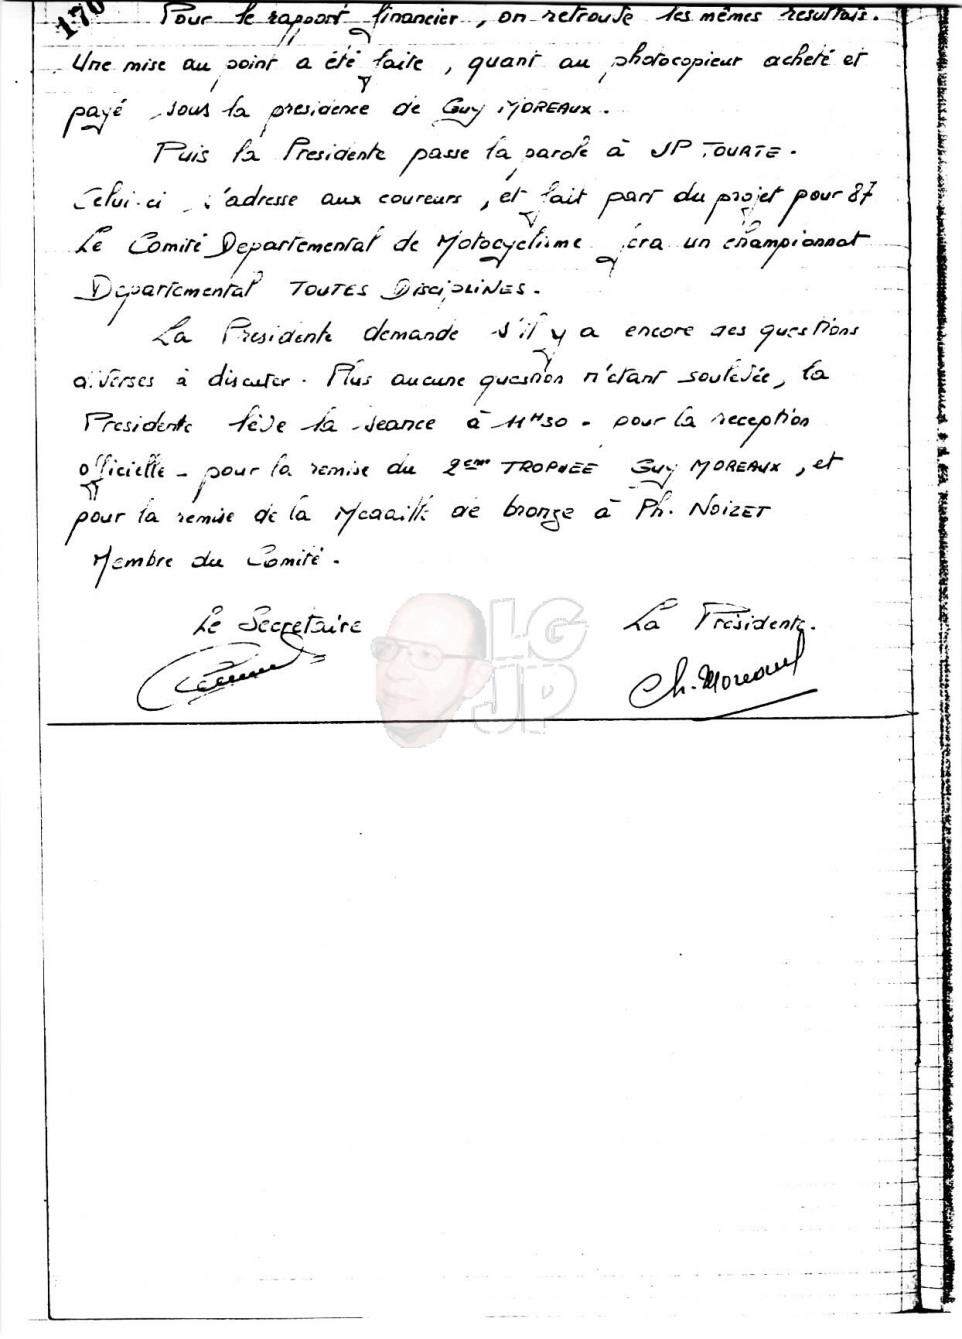 170
Pour le rapport financier, on retrouve les mêmes resultats.
Une mise au point a été faite, quant au photocopieur acheté et
payé sous la presidence de Guy MOREAUX.
Puis la Presidente passe la parole à JP TOURTE.
Celui-ci s'adresse aux coureurs, et fait part du projet pour 87
Le Comité Departemental de Motocyclisme fera un championnat
Departemental TOUTES DISCIPLINES.
La Presidente demande s'il y a encore des questions
diverses à discuter. Plus aucune question n'étant soulevée, la
Presidente lève la seance à 11H30 - pour la reception
officielle - pour la remise du 2eme TROPHEE Guy MOREAUX, et
pour la remise de la Medaille de bronze à Ph. NOIZET
Membre du Comité.
Le Secretaire La Présidente.
Ch. Moreaux
LG
JP